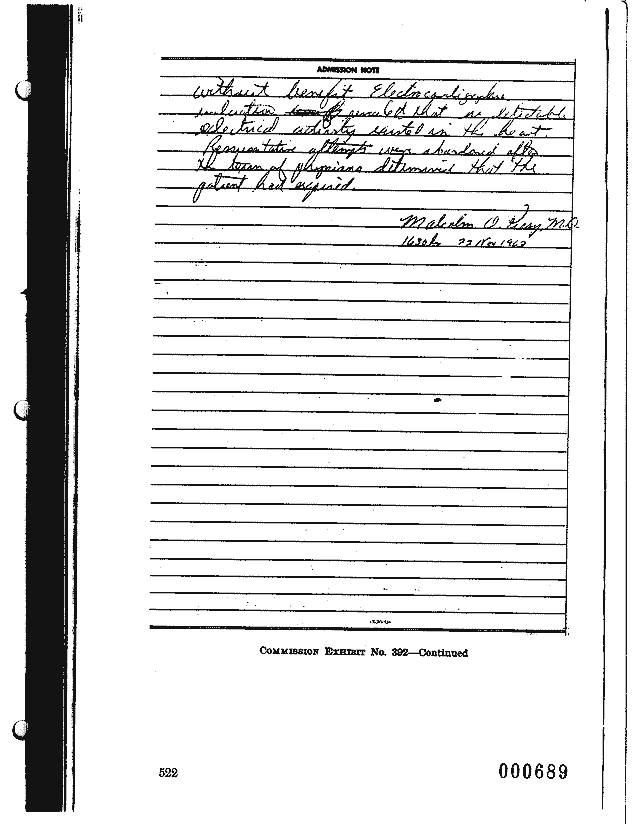 ADMISSION NOTE
without benefit Electrocardiographic
evaluation revealed that no detectable
electrical activity existed in the heart.
Resuscitative attempts were abandoned after
the team of physicians determined that the
patient had expired.
Malcolm O. Perry, M.D.
1630 hr 22 Nov 1963
COMMISSION EXHIBIT No. 392—Continued
522
000689